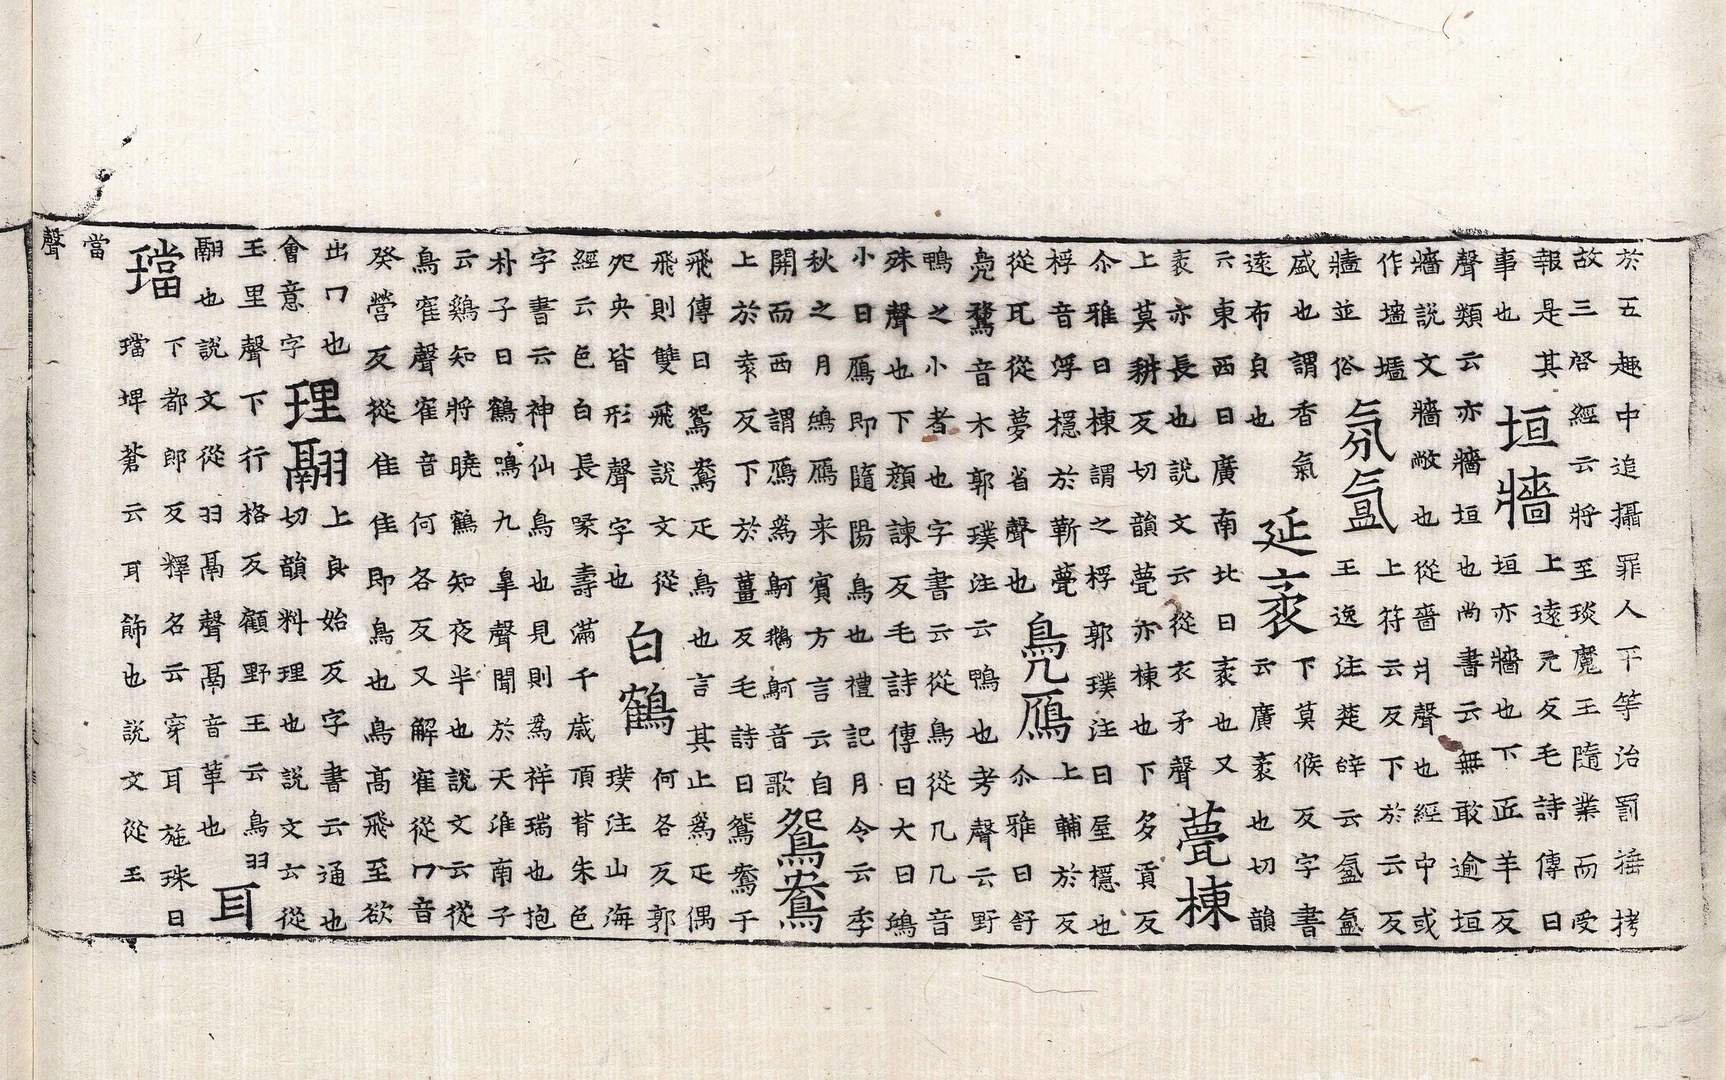 於五趣中追攝罪人下等治罰捶拷
故三啓經云將至琰魔王隨業而受
報是其
事也
垣牆
上遠元反毛詩傳曰
垣亦牆也下匠羊反
聲類云亦牆垣也尚書云無敢逾垣
牆說文牆蔽也從嗇爿聲也經中或
作
牆並俗
氛氳
上符云反下於云反
王逸注楚辭云氳氳
盛也謂香氣
遠布皃也
延袤
下莫候反字書
云廣袤也切韻
云東西曰廣南北曰袤也又
袤亦長也說文云從衣矛聲
甍棟
上莫耕反切韻甍亦棟也下多貢反
尒雅曰棟謂之桴郭璞注曰屋檼也
桴音浮檼於靳甍
從瓦從夢省聲也
鳧鴈
上輔於反
尒雅曰舒
鳧鶩音木郭璞注云鴨也考聲云野
鴨之小者也字書云從鳥從几几音
殊聲也下顏諫反毛詩傳曰大曰鴻
小曰鴈即隨陽鳥也禮記月令云季
秋之月鴻鴈来賓方言云自
開而西謂鴈爲鴚鵝鴚音歌
鴛鴦
上於袁反下於薑反毛詩曰鴛鴦于
飛傳曰鴛鴦疋鳥也言其止爲疋偶
飛則雙飛說文從
夗央皆形聲字也
白鶴
何各反郭
璞注山海
經云色白長喙壽滿千歲頂背朱色
字書云神仙鳥也見則爲祥瑞也抱
朴子曰鶴鳴九皐聲聞於天淮南子
云鷄知將曉鶴知夜半也說文云從
鳥隺聲隺音何各反又解隺從冂音
癸營反從隹隹即鳥也鳥高飛至欲
出冂也
會意字
理翮
上良始反字書云通也
切韻料理也說文云從
王里聲下行格反顧野王云鳥羽
翮也說文從羽鬲聲鬲音革也
耳
璫
下都郎反釋名云穿耳施珠曰
璫埤蒼云耳飾也說文從王
當
聲